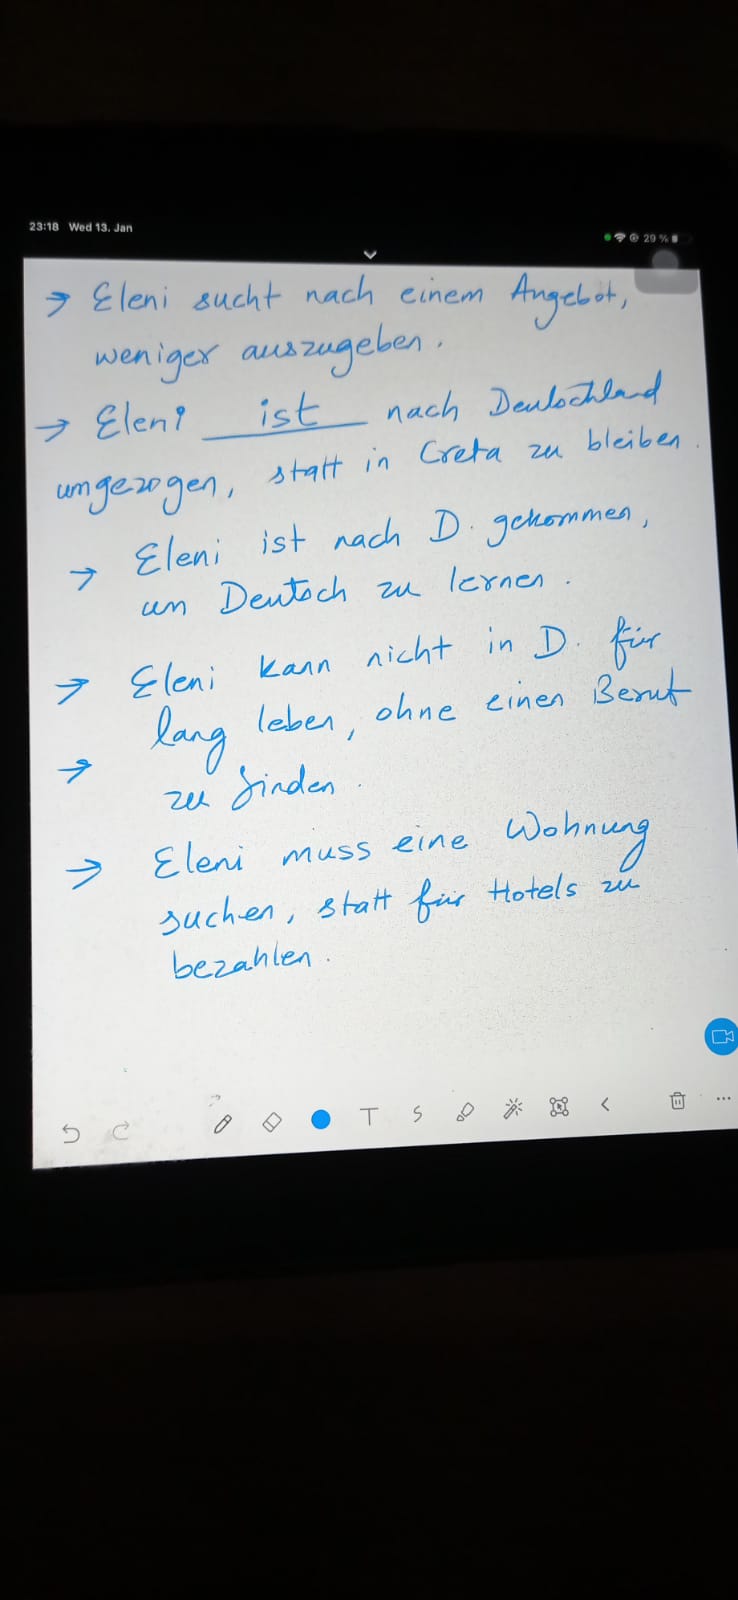 23:18 Wed 13. Jan
29 %
→ Eleni sucht nach einem Angebot,
weniger auszugeben.
→ Eleni ist nach Deutschland
umgezogen, statt in Creta zu bleiben.
→ Eleni ist nach D. gekommen,
um Deutsch zu lernen.
→ Eleni kann nicht in D. für
lang leben, ohne einen Beruf
→ zu finden.
→ Eleni muss eine Wohnung
suchen, statt für Hotels zu
bezahlen.
T